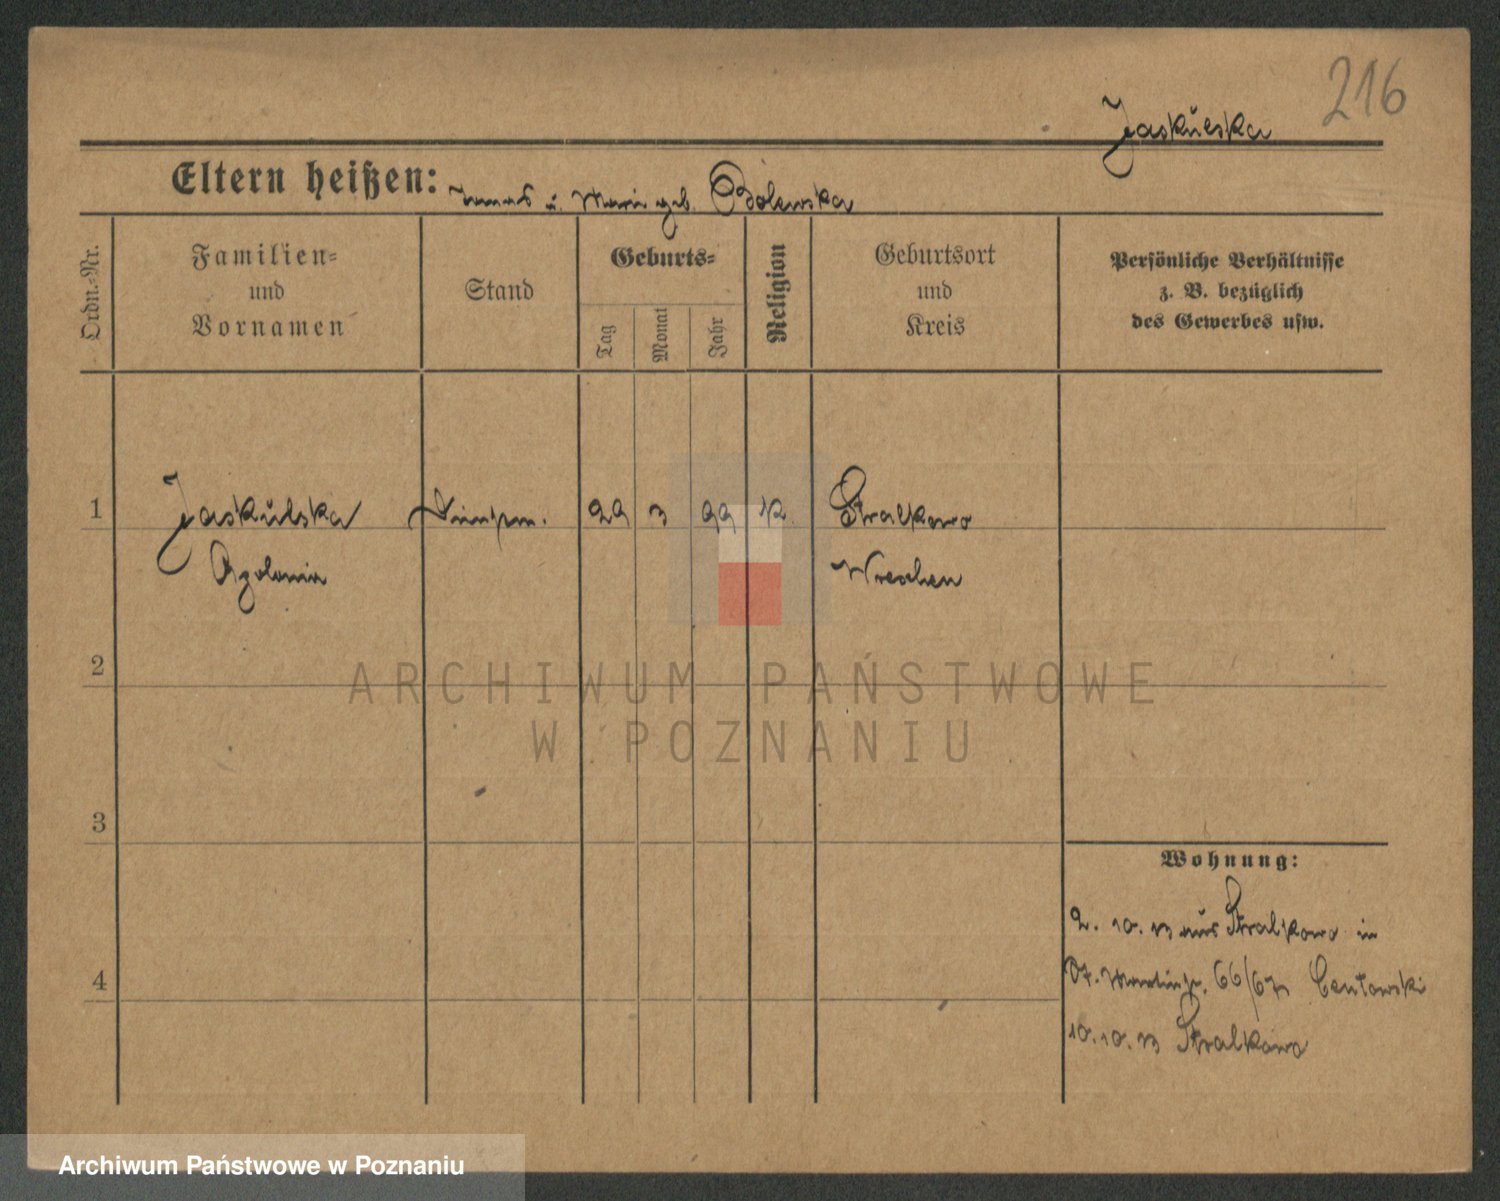 216
Jaskulska
Eltern heißen: Tomas u. Marie geb. Bolewska
Ordn.-Nr.
Familien-
und
Vornamen
Stand
Geburts-
Tag
Monat
Jahr
Religion
Geburtsort
und
Kreis
Persönliche Verhältnisse
z. B. bezüglich
des Gewerbes usw.
1 Jaskulska 29 3 99 K Stralkowo
Apolonia Wreschen
2
3
4
ARCHIWUM PAŃSTWOWE
W POZNANIU
Wohnung:
2. 10. 13 aus Stralkowo in
St. Martinstr. 66/67
10. 10. 13 Stralkowo
Archiwum Państwowe w Poznaniu